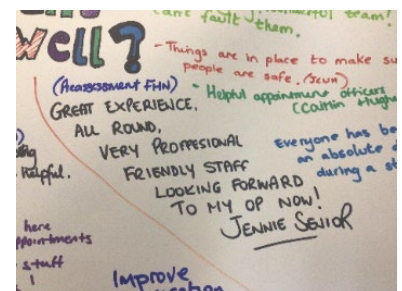 can't fault them.
team!
well?
- Things are in place to make su
people are safe.
- Helpful appointment officers
(Caitlin Hughe
GREAT EXPERIENCE,
ALL ROUND,
VERY PROFFESIONAL
FRIENDLY STAFF
LOOKING FORWARD
TO MY OP NOW!
JENNIE SENIOR
Everyone has be
an absolute d
during a st
helpful.
here
appointments
stuff
I
Improve